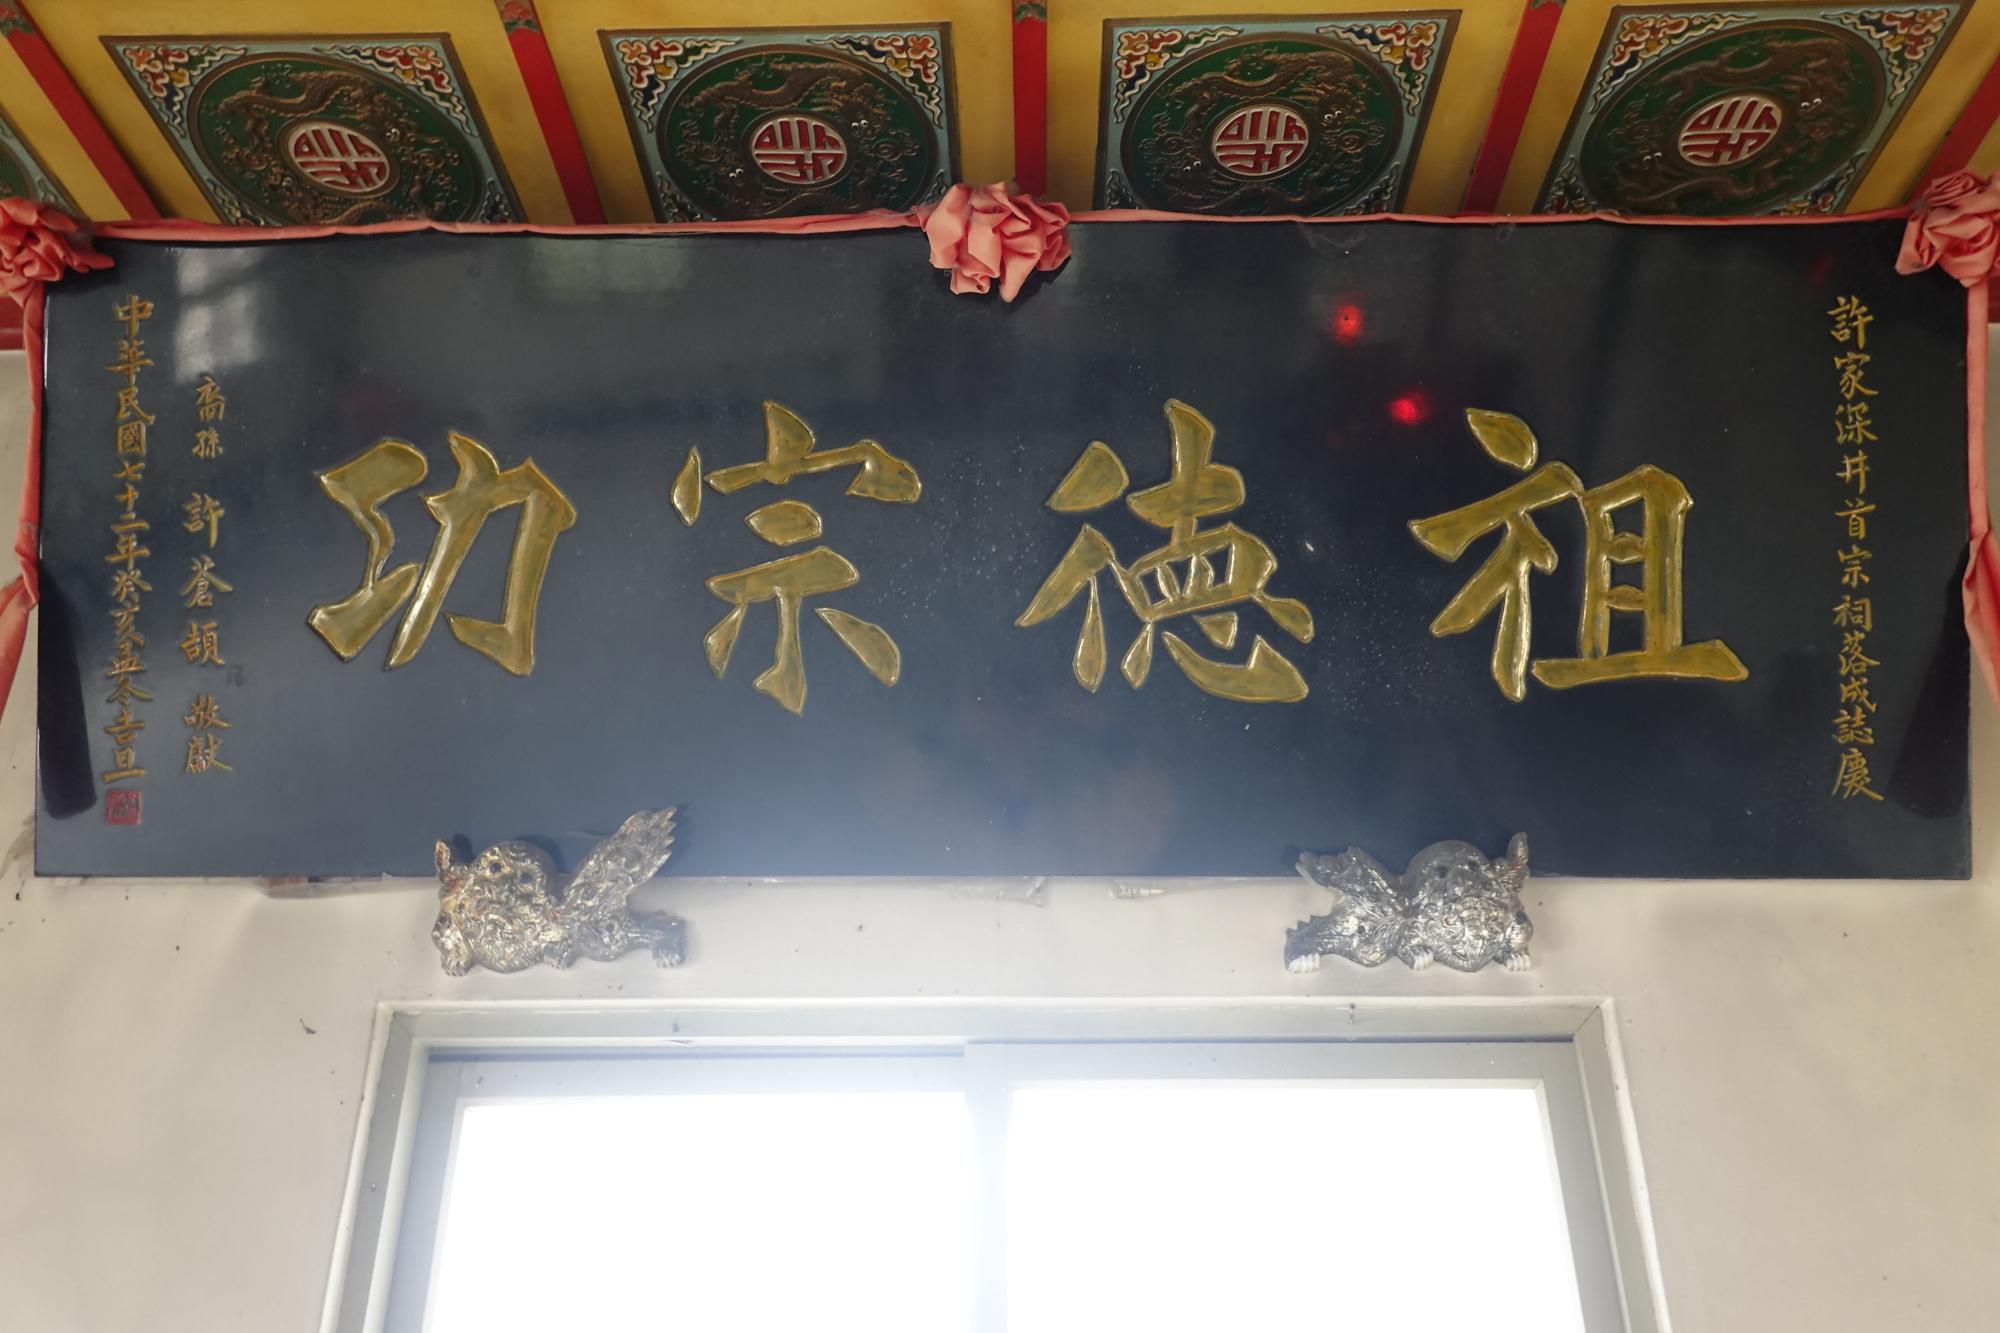 許家深井首宗祠落成誌慶
祖德宗功
裔孫 許蒼頡 敬獻
中華民國七十二年癸亥孟冬吉旦